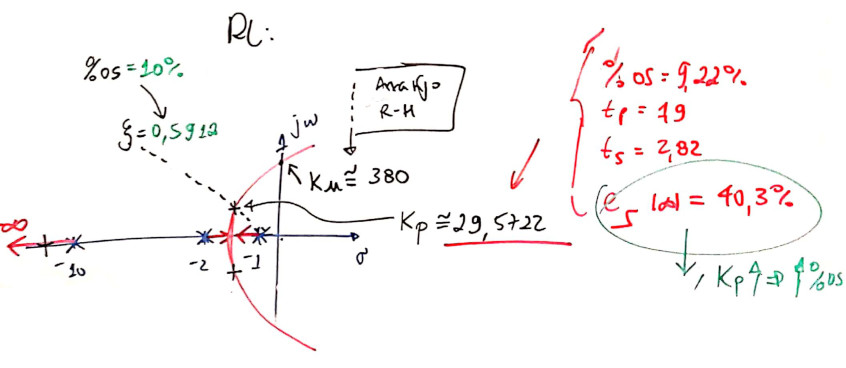 RL:
%OS=10%
ξ=0,5912
Arranjo
R-H
jω
Ku ≅ 380
Kp ≅ 29,5722
∞
-10
-2
-1
σ
%OS = 9,22%
tp = 19
ts = 2,82
e_s(∞) = 40,3%
↓, Kp↑ ⇒ ↑%OS